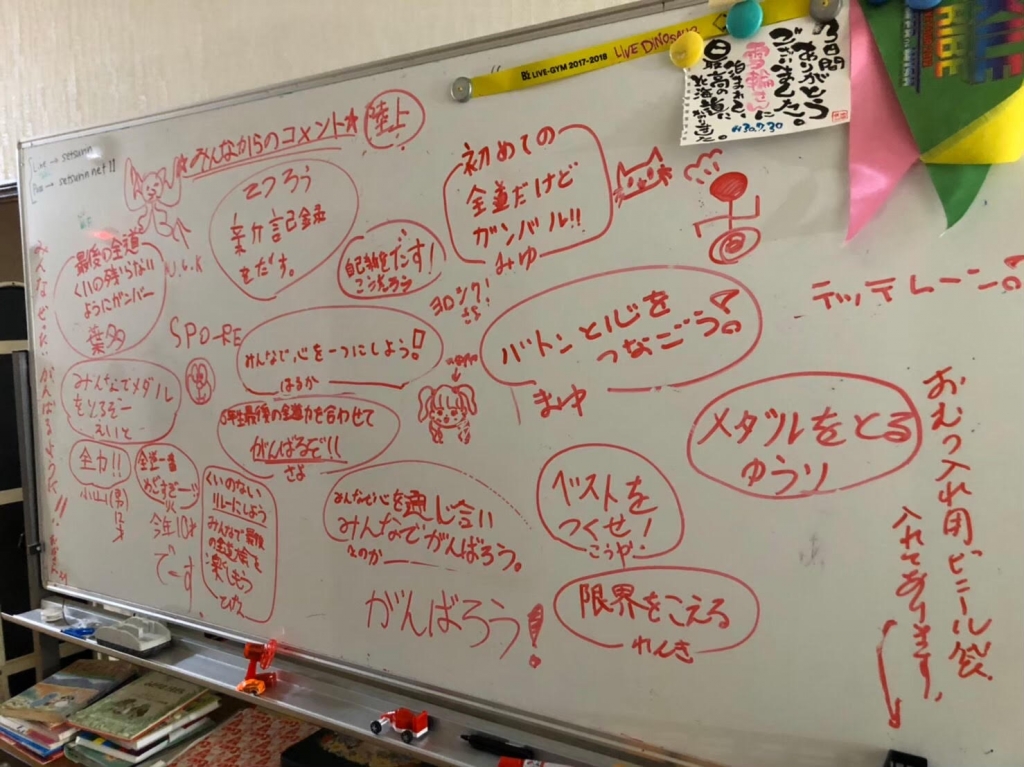 Line → setsurin
Pass → setsurin net 11
☆みんなからのコメント☆
陸上
B'z LIVE-GYM 2017-2018 LIVE DINOSAUR
3日間
ありがとう
ございました。
雪輪さんに
泊まれて
最高の
北海道に
なりました。
H30.7.30
初めての
全道だけど
ガンバル!!
みゆ
新カ記録
をだす。
自己新をだす!
最後の全道
くいの残らない
ようにガンバー
葉多
U.G.K
ヨロシク!
SPO-RE
みんなで心を一つにしよう!
はるか
バトンと心を
つなごう!
まゆ
テッテレーン♪
みんなでメダル
をとるぞー
えいと
6年生最後の全道力を合わせて
がんばるぞ!!
さよ
メダルをとる
ゆうり
全力!!
小山(男)
12才
全道一番
めざすぞー
りく
今年10才
でーす
くいのない
リレーにしよう
みんなで最後
の全道大会を
楽しもう
みんな心を通じ合い
みんなでがんばろう。
ベストを
つくせ!
こうや
がんばろう!
限界をこえる
れんき
おむつ入れ用ビニール袋
入れてあります。